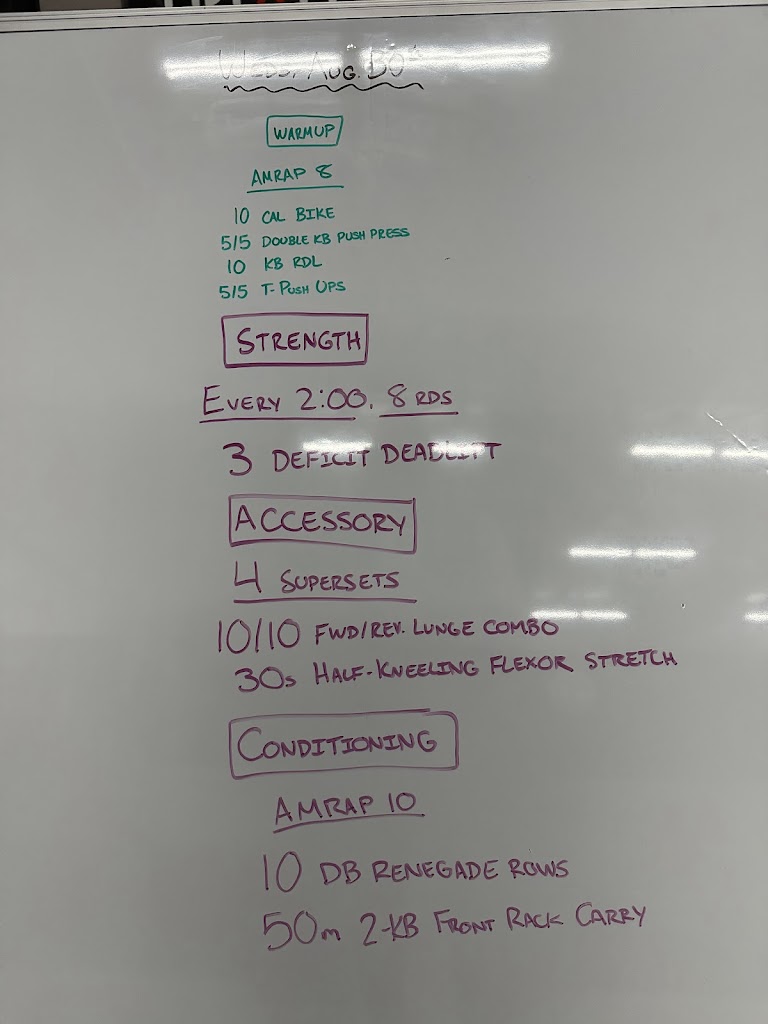 WEDS. AUG. 30th
WARMUP
AMRAP 8
10 CAL BIKE
5/5 DOUBLE KB PUSH PRESS
10 KB RDL
5/5 T-PUSH UPS
STRENGTH
EVERY 2:00. 8 RDS
3 DEFICIT DEADLIFT
ACCESSORY
4 SUPERSETS
10/10 FWD/REV. LUNGE COMBO
30s HALF-KNEELING FLEXOR STRETCH
CONDITIONING
AMRAP 10
10 DB RENEGADE ROWS
50m 2-KB FRONT RACK CARRY